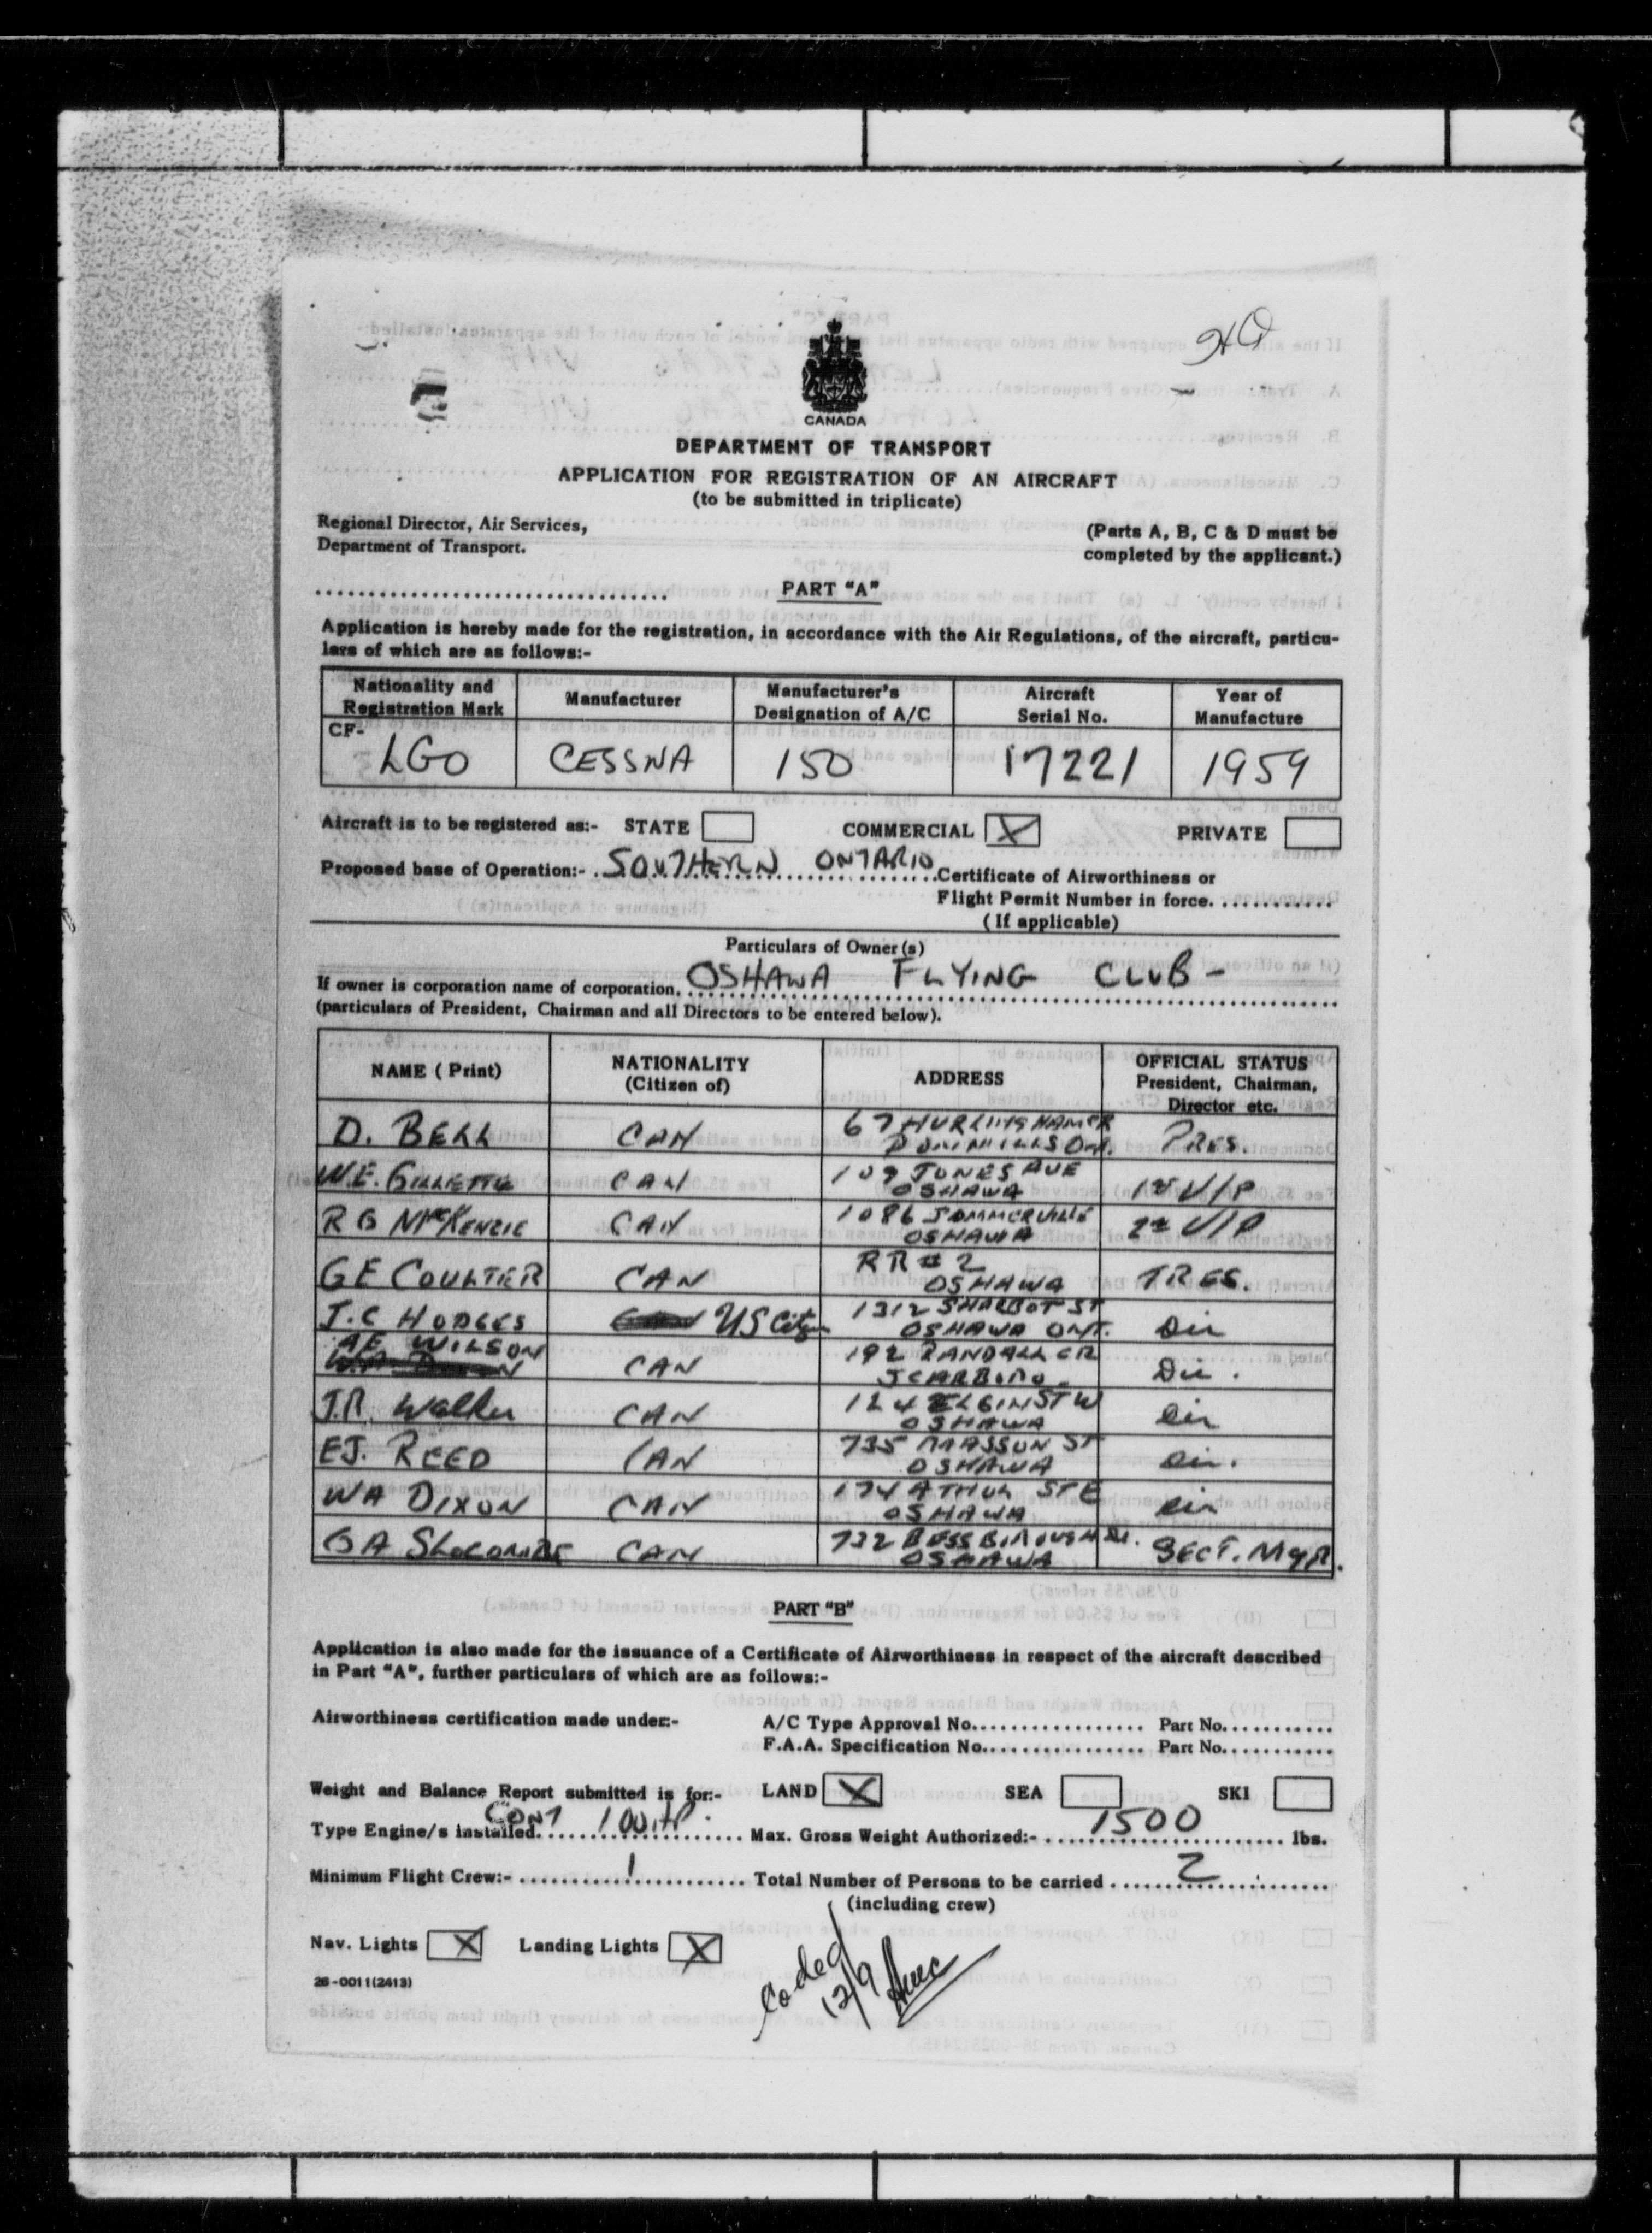 HQ
CANADA
DEPARTMENT OF TRANSPORT
APPLICATION FOR REGISTRATION OF AN AIRCRAFT
(to be submitted in triplicate)
Regional Director, Air Services,
Department of Transport.
(Parts A, B, C & D must be
completed by the applicant.)
PART "A"
Application is hereby made for the registration, in accordance with the Air Regulations, of the aircraft, particu-
lars of which are as follows:-
Nationality and Registration Mark Manufacturer Manufacturer's Designation of A/C Aircraft Serial No. Year of Manufacture
CF- LGO CESSNA 150 17221 1959
Aircraft is to be registered as:- STATE COMMERCIAL X PRIVATE
Proposed base of Operation:- SOUTHERN ONTARIO Certificate of Airworthiness or
Flight Permit Number in force.
(If applicable)
Particulars of Owner(s)
If owner is corporation name of corporation. OSHAWA FLYING CLUB -
(particulars of President, Chairman and all Directors to be entered below).
NAME (Print) NATIONALITY (Citizen of) ADDRESS OFFICIAL STATUS President, Chairman, Director etc.
D. BELL CAN 67 DON MILLS Ont. PRES.
W.E. GILLETTE CAN 109 JONES AVE OSHAWA 1st V/P
R G McKENZIE CAN 1086 SOMMERVILLE OSHAWA 2nd V/P
GE COULTER CAN RR # 2 OSHAWA TRES.
J.C HODGES US Citizen 1312 SHARBOT ST OSHAWA ONT. Dir
AE WILSON CAN 192 RANDALL CR SCARBORO. Dir.
J.R. Walker CAN 124 ELGIN ST W OSHAWA Dir
EJ. REED CAN 735 MASSON ST OSHAWA Dir.
WA DIXON CAN 174 ATHUR ST E OSHAWA Dir
GA SLOCOMBE CAN 732 BESSBOROUGH Dr. OSHAWA SECT. MgR.
PART "B"
Application is also made for the issuance of a Certificate of Airworthiness in respect of the aircraft described
in Part "A", further particulars of which are as follows:-
Airworthiness certification made under:- A/C Type Approval No. Part No.
F.A.A. Specification No. Part No.
Weight and Balance Report submitted is for:- LAND X SEA SKI
Type Engine/s installed. CONT 100 HP. Max. Gross Weight Authorized:- 1500 lbs.
Minimum Flight Crew:- 1 Total Number of Persons to be carried 2
(including crew)
Nav. Lights X Landing Lights X
26-0011(2413)
Coded
12/9